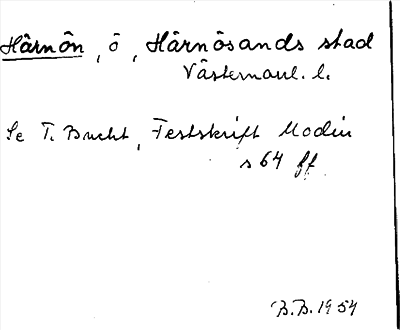 Härnön, ö, Härnösands stad
Västernorrl. l.
Se T. Bucht, Festskrift Modin
s 64 ff
B.B. 1954